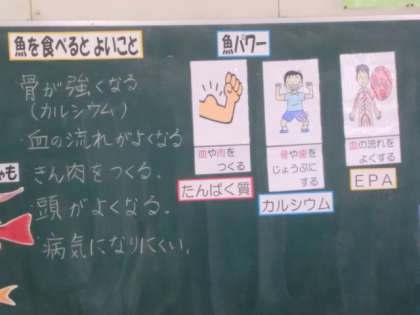 魚を食べると よいこと
骨が強くなる
(カルシウム)
・血の流れがよくなる
きん肉をつくる.
・頭がよくなる.
・病気になりにくい.
魚パワー
血や肉を
つくる
たんぱく質
骨や歯を
じょうぶに
する
カルシウム
血の流れを
よくする
EPA